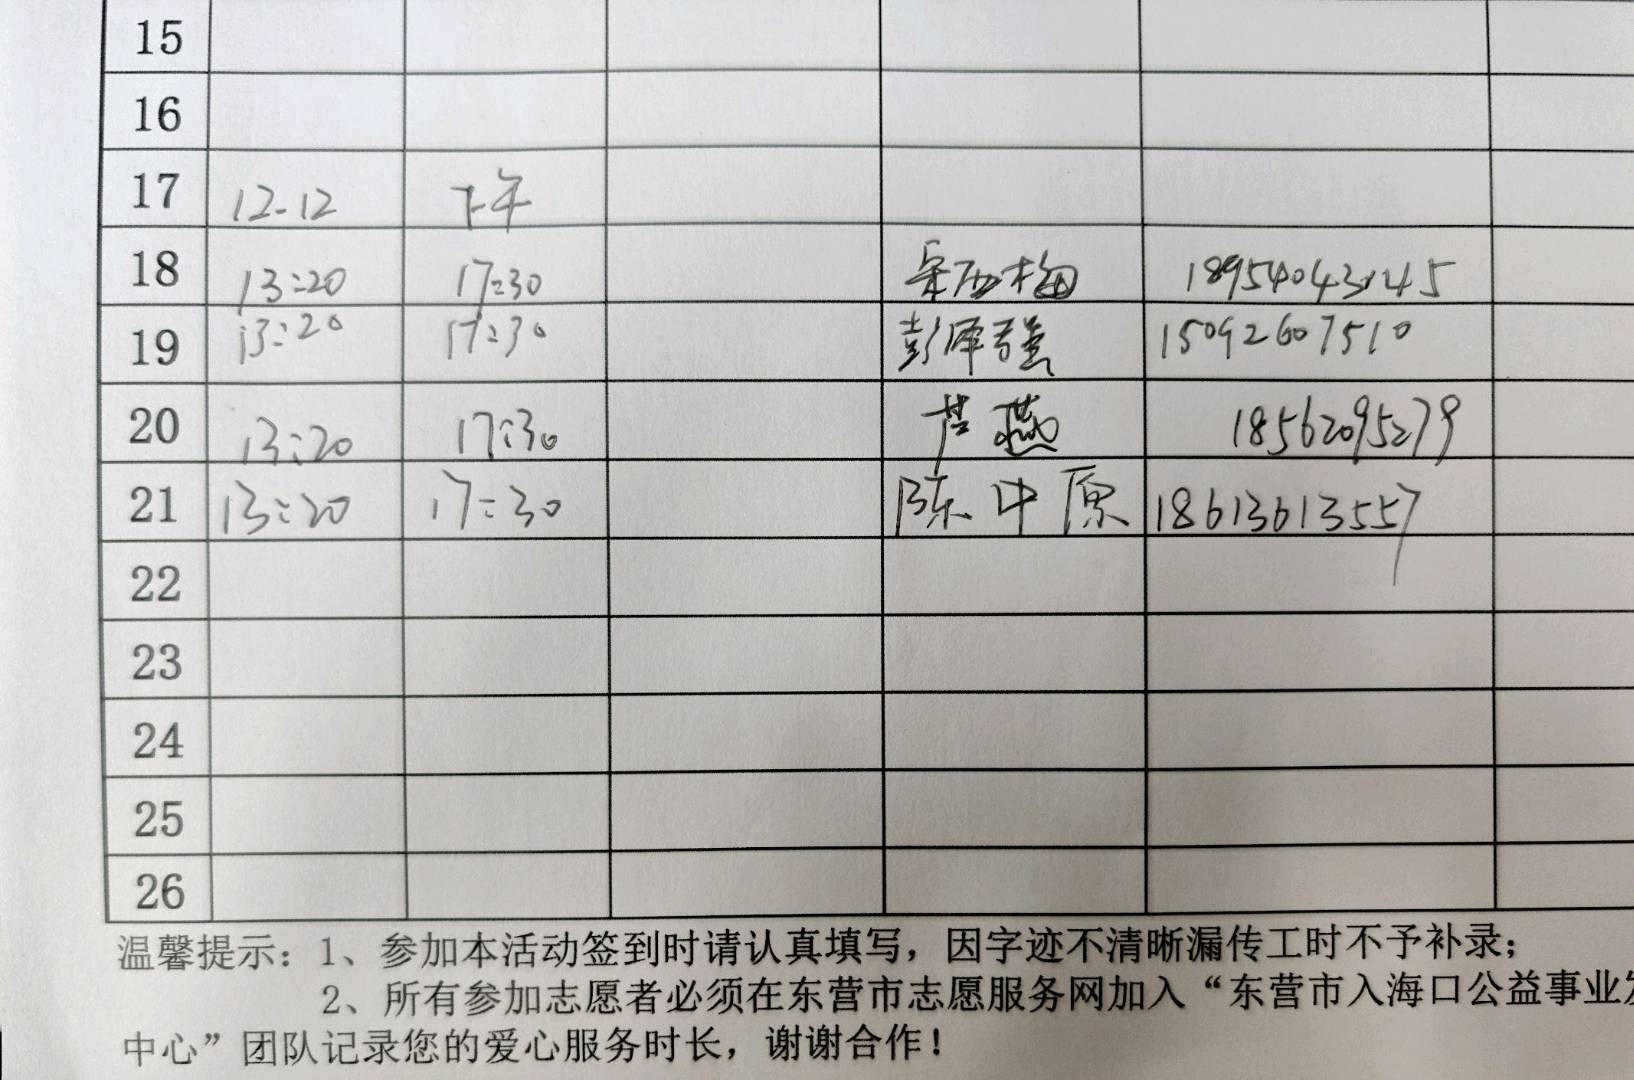 15
16
17 12-12 下午
18 13:20 17:30 西梅 18954043145
19 13:20 17:30 彭泽强 15092607510
20 13:20 17:30 芦燕 18562095279
21 13:20 17:30 陈中原 18613613557
22
23
24
25
26
温馨提示：1、参加本活动签到时请认真填写，因字迹不清晰漏传工时不予补录；
2、所有参加志愿者必须在东营市志愿服务网加入“东营市入海口公益事业发
中心”团队记录您的爱心服务时长，谢谢合作！